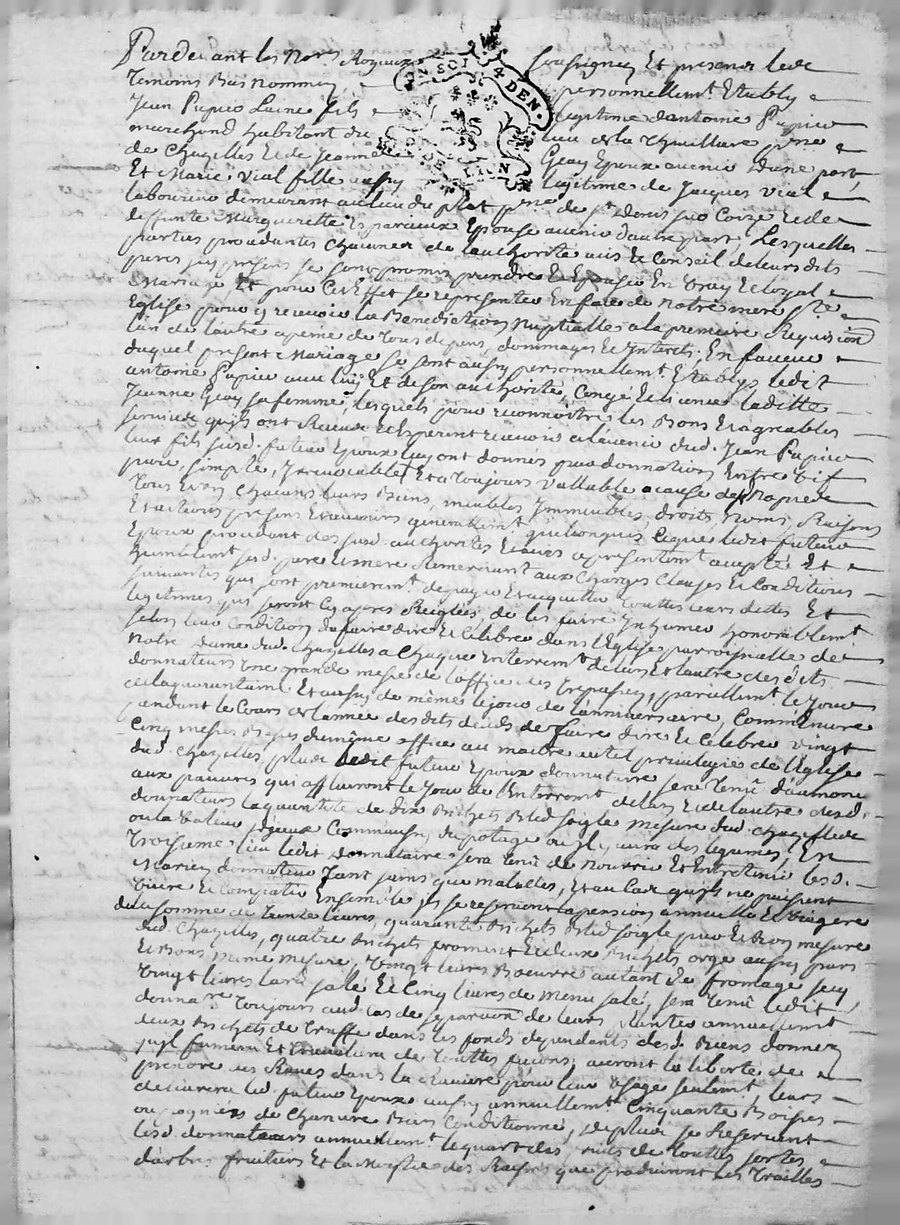 Pardevant les No.res Royaux Soussignez Et presence de de
Temoins Bas Nommez personnellem.t Etably
Jean Papico Laine fils legitime d'antoine Papico
marchand habitant du lieu de la Thuilliare p.sse
de Chazelles Et de Jeanne Geay Epoux avenir Dune part
Et Marie Vial fille aussy legitime de Jacques Vial
laboureur demeurant au lieu du plat p.sse de S.t Denis sur Coize Et de
defunte Margueritte Epouse avenir d'autre part Lesquelles
parties procedantes chacune de l'authorité avis Et Conseil de leurs dits
peres icy presens se sont promis prendre Et Epouser En vray Et loyal
Mariage Et pour Cet Effet se representer En face de notre mere S.te
Eglise pour y recevoir la Benediction Nuptialle a la premiere Requisition
l'un de l'autre a peine de tous depens, dommages Et Interets. En faveur
duquel present Mariage se sont aussy personnellem.t Etablys ledit
antoine Papico avec luy Et de son authorité, Congé Et licence laditte
Jeanne Geay sa femme, lesquels pour reconnoitre les Bons Et agreables
services qu'ils ont Receus Et Esperent recevoir a l'avenir dud. Jean Papico
leur fils susd. futur Epoux luy ont donnés par donnation Entre vif
pure, simple, Irrevocable Et a toujours vallable a cause de Nopces
tous Et un Chacuns leurs Biens, meubles, Immeubles, droits, Noms, Raisons
Et actions presens Et avenirs generallem.t quelconques Ce que ledit futur
Epoux procedant des susd. authorités Et avis a presentem.t accepté Et
humblem.t susd. pere Et mere Remerciant aux Charges Clauses Et Conditions
suivantes qui sont premierem.t de payer Et acquitter touttes leurs dettes Et
legitimes qui seront Cy apres Reglées, de les faire Inhumer honorablem.t
selon leur Condition de faire dire Et Celebrer dans l'Eglise parroissialle de
Notre Dame dud. Chazelles a Chaque Enterrem.t de l'un Et l'autre des dits
donnateurs Une grande messe de l'office des Trepassez, pareillem.t le jour
de la quarantaine Et aussy de même le jour de l'anniversaire, Comm'encore
pendant le Cours de l'année des dits décès de faire dire Et Celebrer vingt
Cinq messes Basses du même office au maitre autel privilegié de l'Eglise
dud. Chazelles, plus ledit futur Epoux donnataire sera tenû d'aumoner
aux pauvres qui assisteront le jour de l'Enterrem.t de l'un Et de l'autre desd.
donnateurs la quantité de dix Bichets Bled soigle mesure dud. Chazelles
ou la valeur du potage ou il y aura des legumes, En
Troisieme lieu ledit donnataire sera tenû de Nourrir Et Entretenir lesd.
Mariez donnateurs tant sains que malades, Et au Cas qu'ils ne puissent
vivre Et Compatir Ensemble ils se reservent la pension annuelle Et viagere
de la somme de trente livres, quarante Bichets Bled soigle pur Et Bon mesure
dud. Chazelles, quatre Bichets froment Et deux Bichets orge aussy purs
Et Bons même mesure, vingt livres Boeurre autant de fromage sec,
vingt livres lard salé Et Cinq livres de menu salé, sera tenû ledit
donna.re toujours aud. cas de separation de leurs planter annuellem.t
deux Bichets de Truffe dans les fonds dependants desd. Biens donnez
Et de touttes façons; auront la liberté de
prendre des Raves dans la Raviere pour leur Usage seulem.t leurs
delivrera led. futur Epoux aussy annuellem.t Cinquante
de Chanvre Bien Conditionné, de plus se Reservent
lesd. donnateurs annuellem.t le quart des fruits de touttes sortes
d'arbres fruitiers Et la Moitié des Raisins que produiront les Trailles